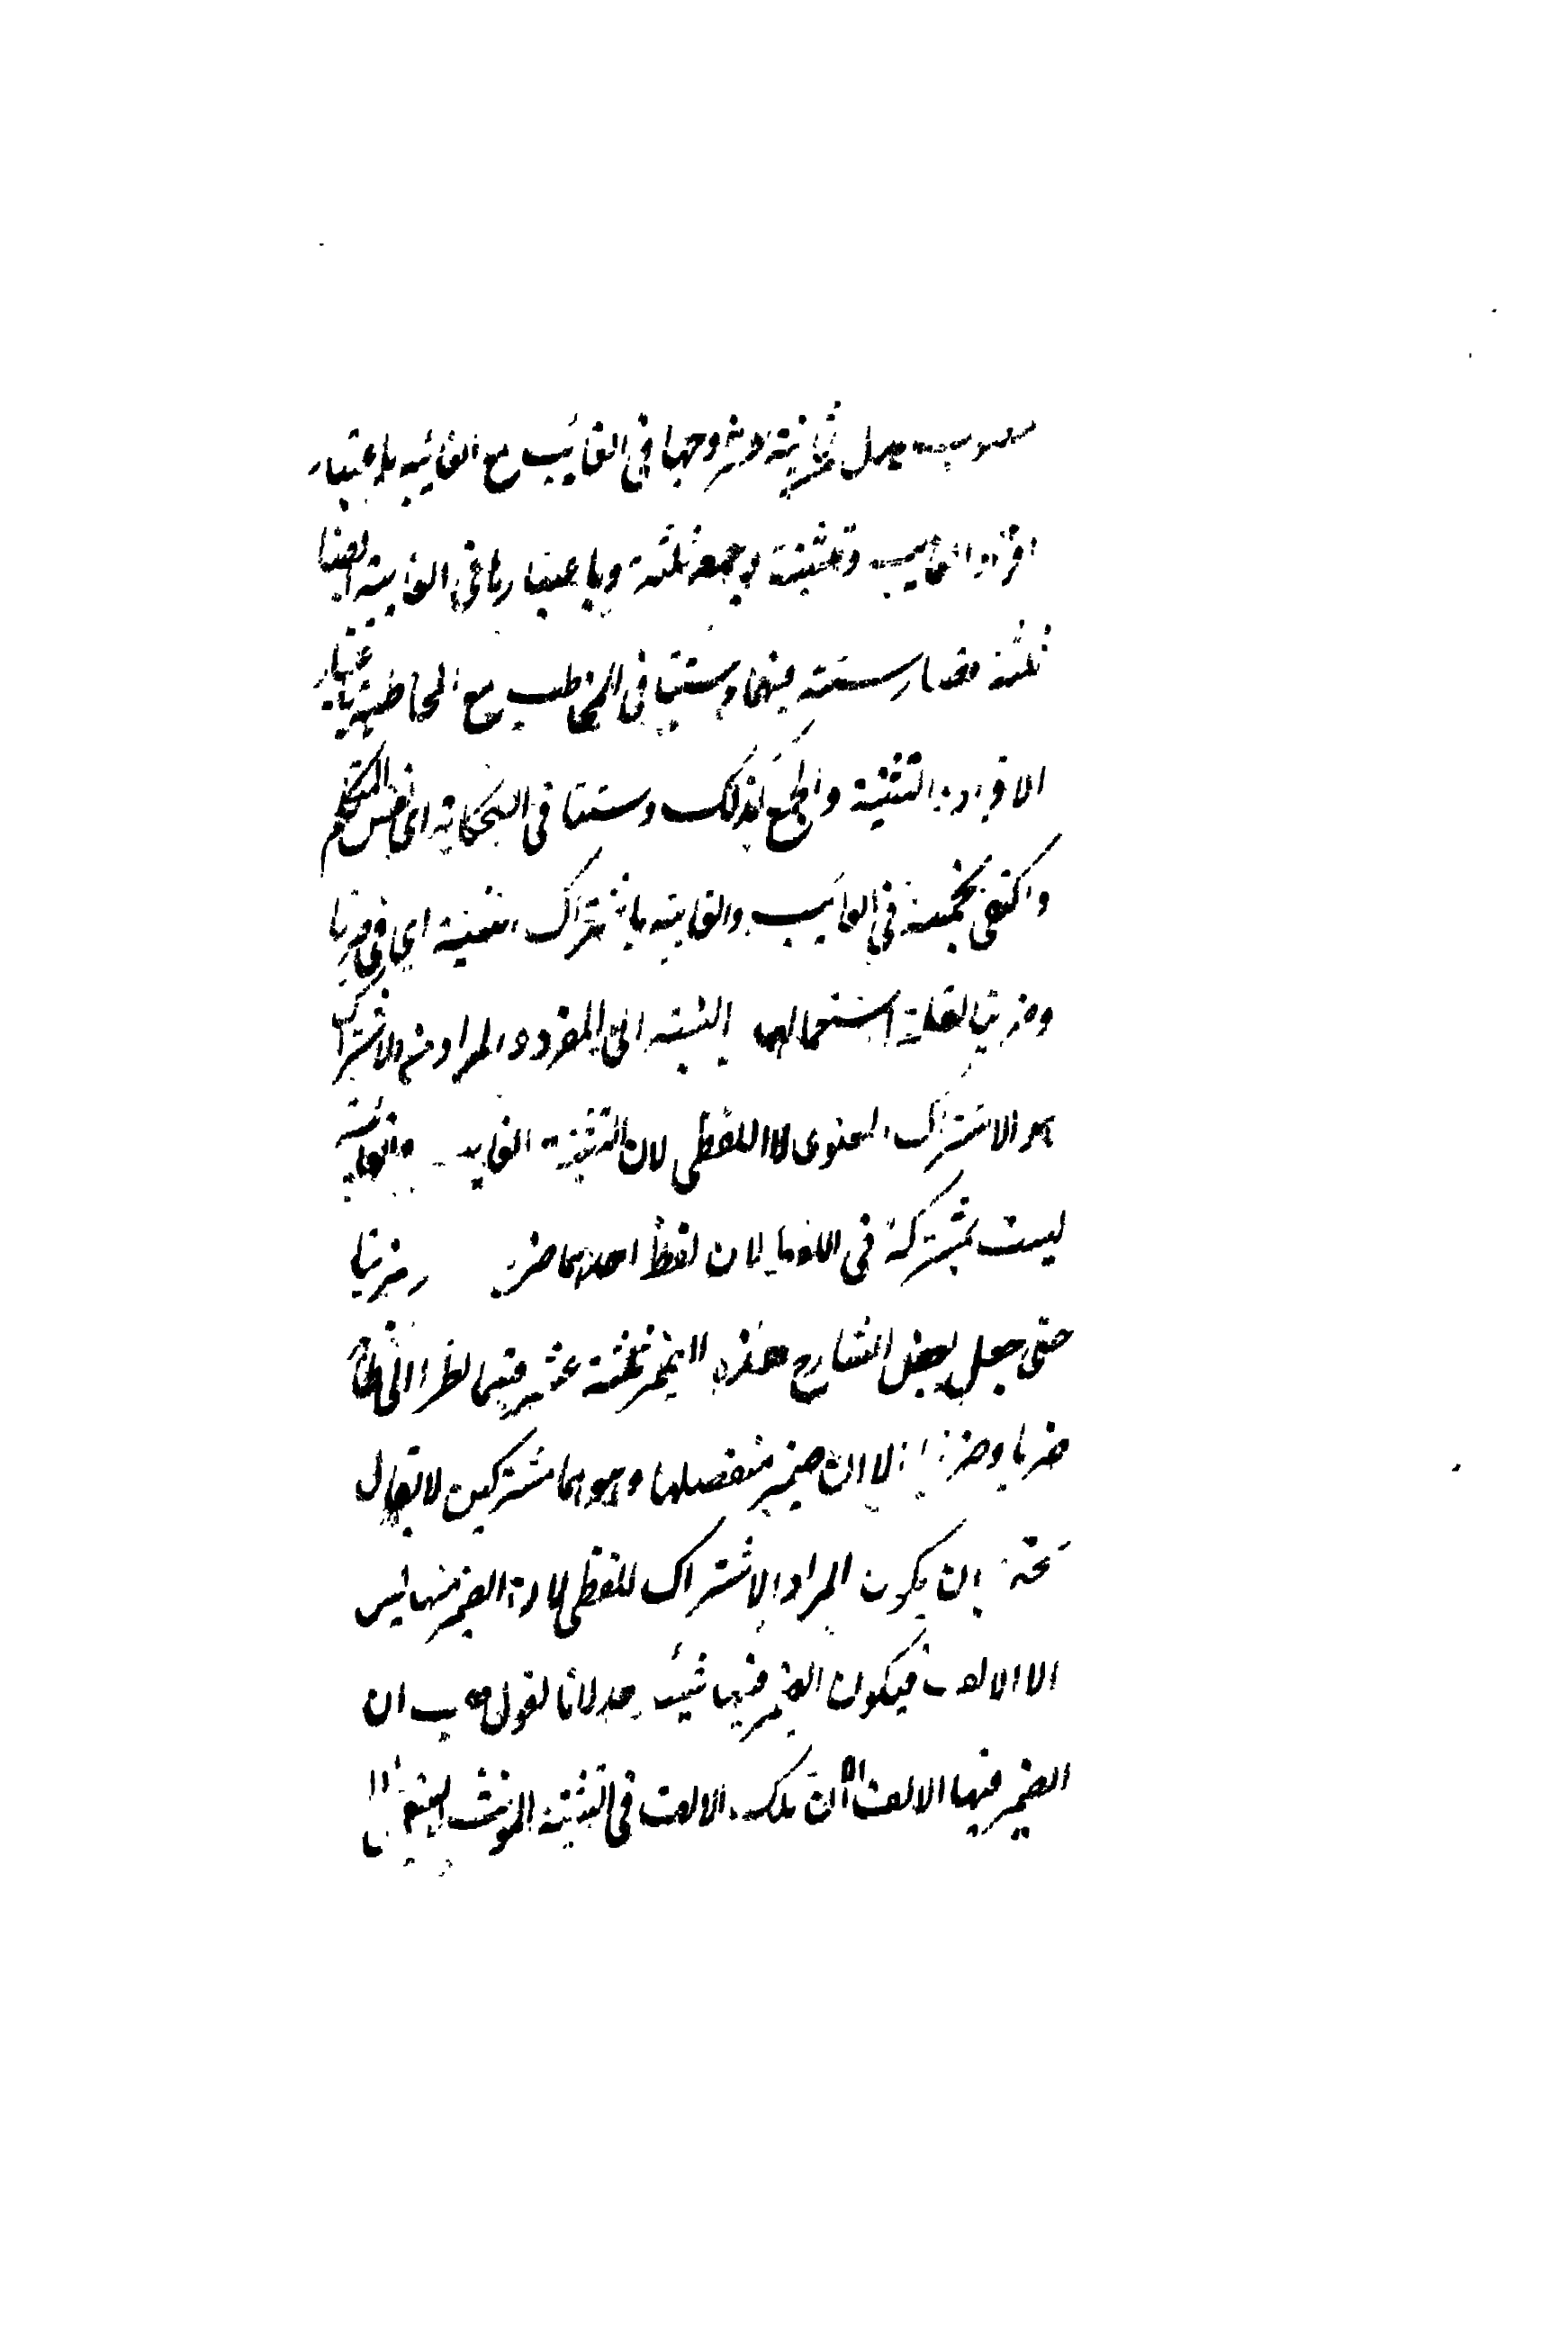 ثمانية عشر وجها في الغائب مع الغائبة باعتبار
افراد الغايب وتثنيته وجمعه ثلثة وباعتبارها في الغايبة ايضا
ثلثة فصار ستة فيهما وستتا في المخاطب مع المخاطبة باعتبار
الافراد والتثنية والجمع كذلك وستتا في الحكاية اي نفس المتكلم
واكتفى بخمسة في الغايب والغايبة باشتراك التثنية اي في ضربا
وضربتا لقلة استعمالها بالنسبة الى المفرد والمراد من الاشتراك
هو الاشتراك المعنوى لا اللفظى لان التثنية الغايب والغائبة
ليست بمشتركة في اللفظ لان لفظ احدهما ضربا وضربتا
حتى جعل بعض الشارح هذه الضمير ثلثة عشر قسما نظرا الى لفظ
ضربا وضربتا الا ان ضمير منفصلها وهو هما مشتركين لا يقال
ان يكون المراد الاشتراك اللفظى لان الضمير فيها ليس
الا الالف فيكون الضمير فيها شيئا لانا نقول ان
الضمير فيها الالف الا ان تلك الالف في تثنية المونث